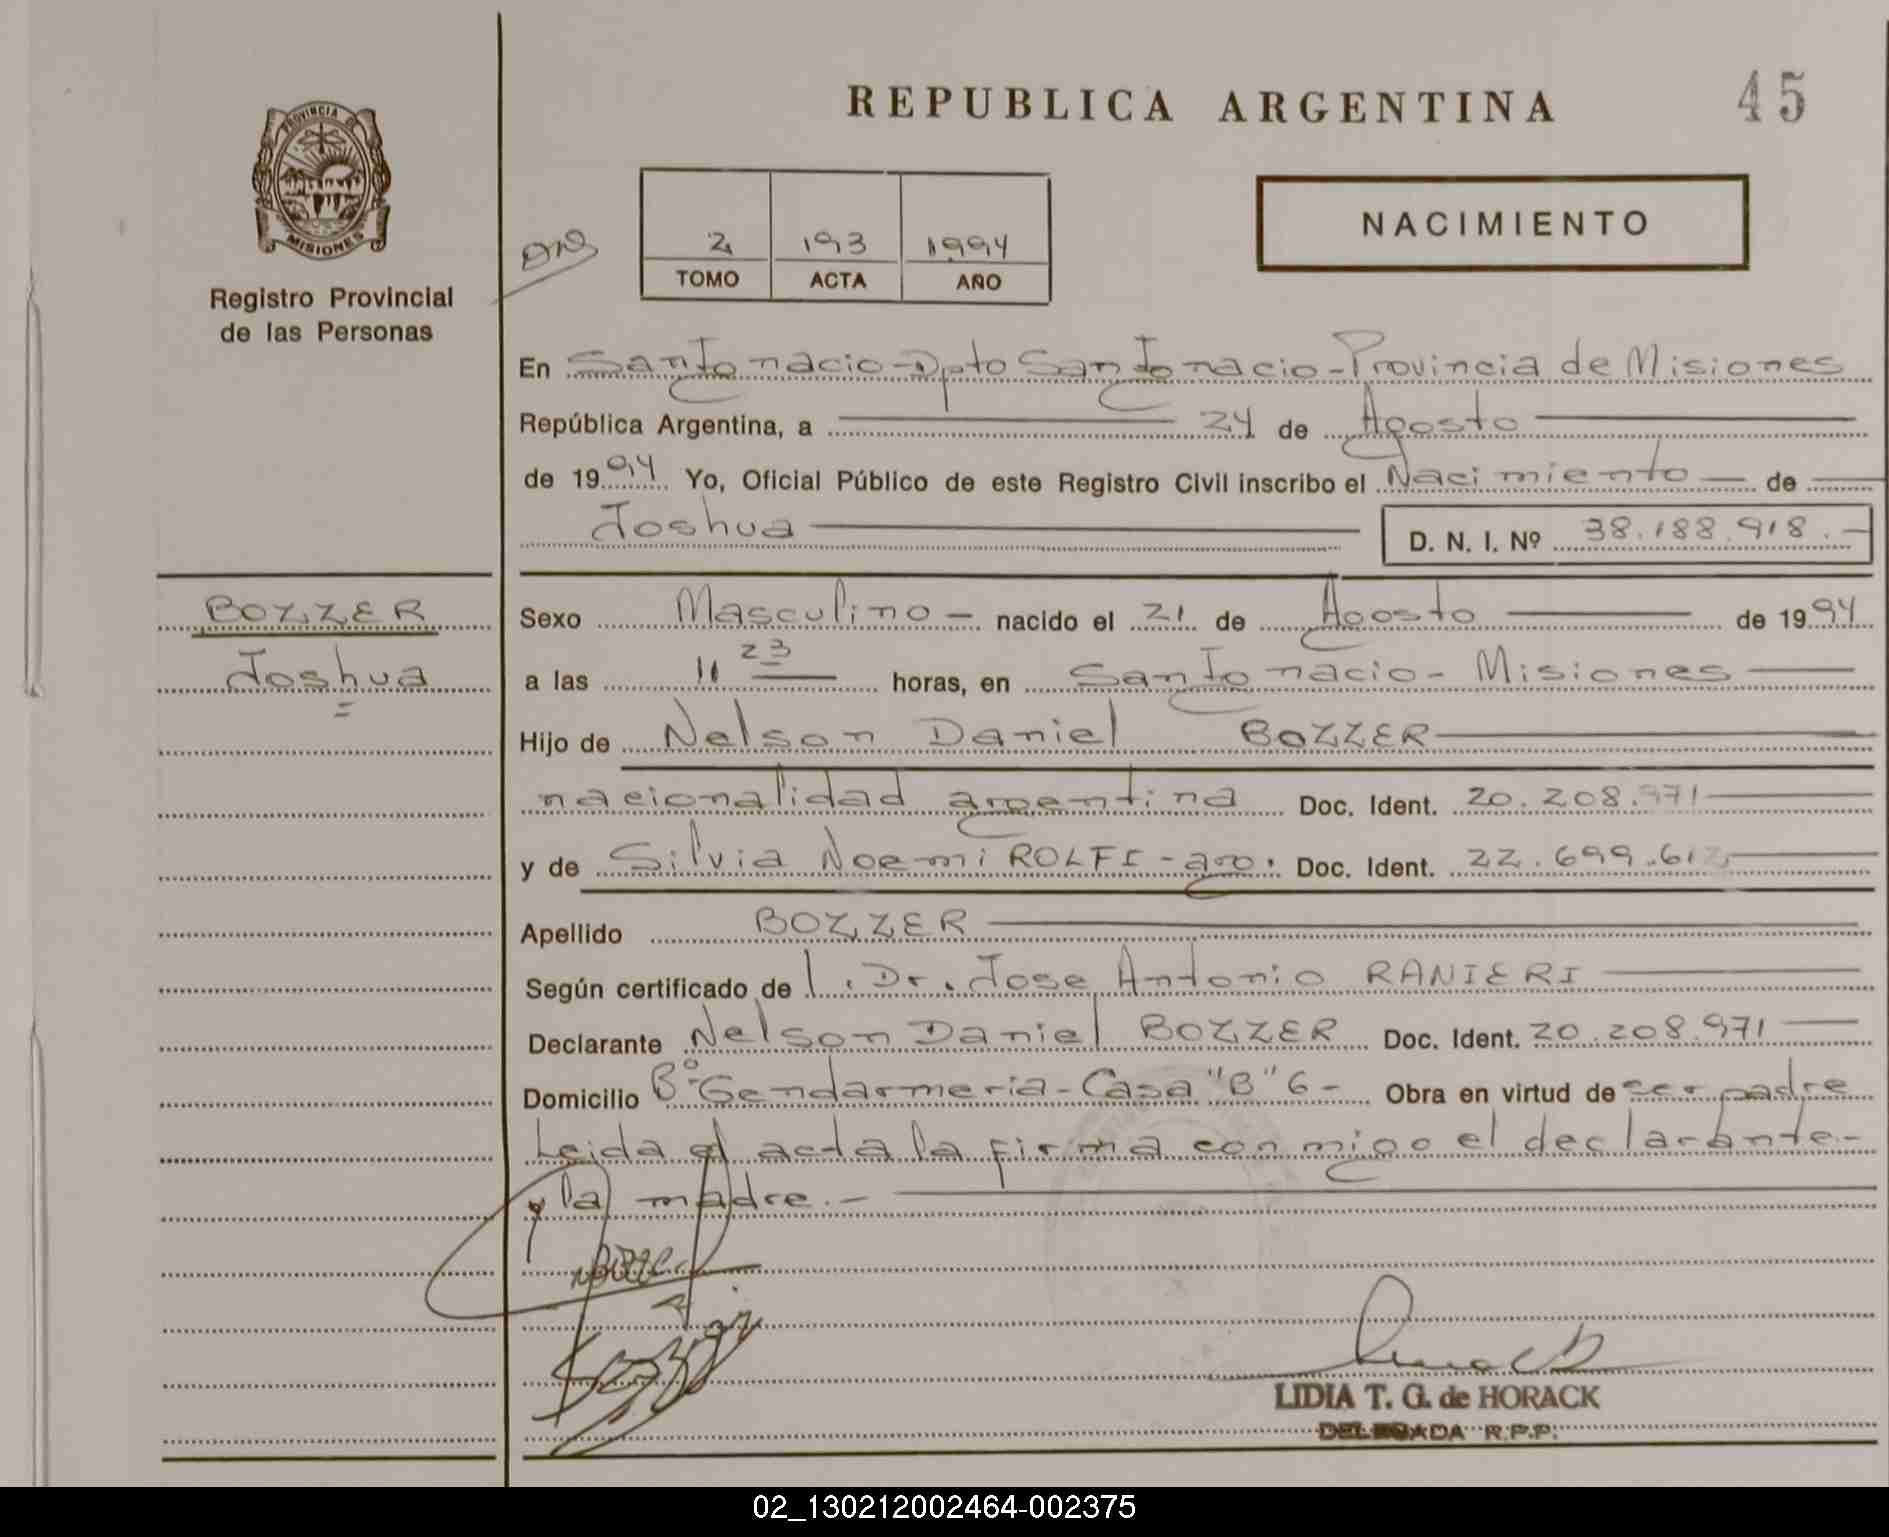 PROVINCIA DE
MISIONES
Registro Provincial
de las Personas
REPUBLICA ARGENTINA
45
2 193 1994
TOMO ACTA AÑO
NACIMIENTO
En San Ignacio - Dpto San Ignacio - Provincia de Misiones
República Argentina, a 24 de Agosto
de 1994 Yo, Oficial Público de este Registro Civil inscribo el Nacimiento de
Joshua D. N. I. Nº 38.188.918.-
BOZZER
Joshua
Sexo Masculino - nacido el 21 de Agosto de 1994
a las 11 23 horas, en San Ignacio - Misiones
Hijo de Nelson Daniel BOZZER
nacionalidad argentina Doc. Ident. 20.208.971
y de Silvia Noemi ROLFI - arg. Doc. Ident. 22.699.61
Apellido BOZZER
Según certificado de l. Dr. Jose Antonio RANIERI
Declarante Nelson Daniel BOZZER Doc. Ident. 20.208.971
Domicilio Bº Gendarmeria - Casa "B" 6 - Obra en virtud de ser padre
Leida el acta la firma conmigo el declarante -
y la madre. -
LIDIA T. G. de HORACK
DELEGADA R.P.P.
02_130212002464-002375